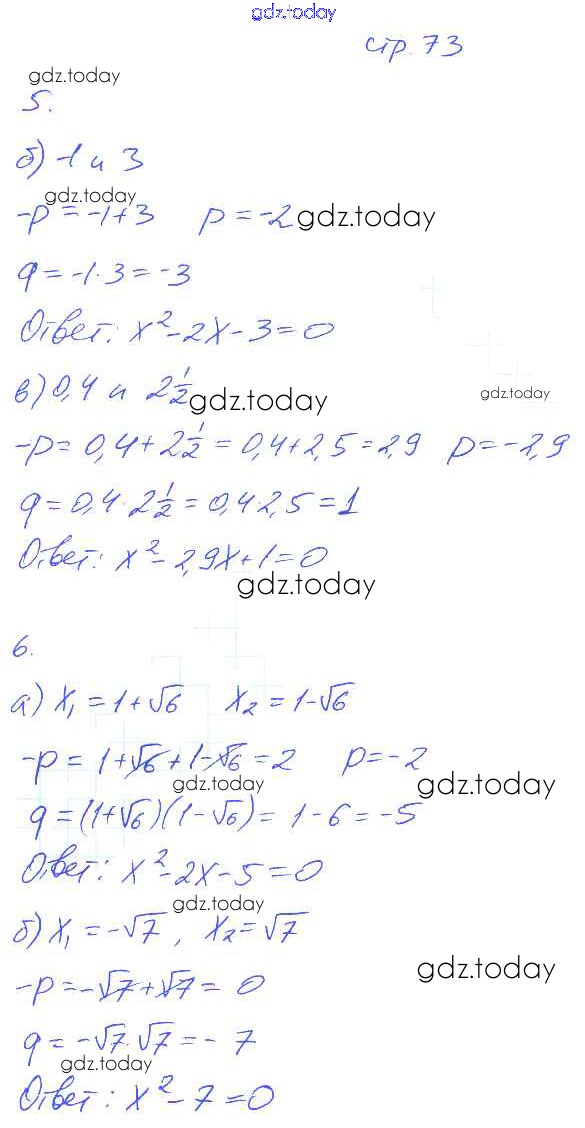 gdz.today
стр. 73
gdz.today
5.
б) -1 и 3
gdz.today
-p = -1+3 p = -2 gdz.today
q = -1·3 = -3
Ответ: x²-2x-3=0
в) 0,4 и 2 1/2 gdz.today gdz.today
-p = 0,4+2 1/2 = 0,4+2,5 = 2,9 p = -2,9
q = 0,4·2 1/2 = 0,4·2,5 = 1
Ответ: x²-2,9x+1=0
gdz.today
6.
а) x₁ = 1+√6 x₂ = 1-√6
-p = 1+√6+1-√6 = 2 p = -2
gdz.today gdz.today
q = (1+√6)(1-√6) = 1-6 = -5
Ответ: x²-2x-5=0
gdz.today
б) x₁ = -√7, x₂ = √7
gdz.today
-p = -√7+√7 = 0
q = -√7·√7 = -7
gdz.today
Ответ: x²-7=0